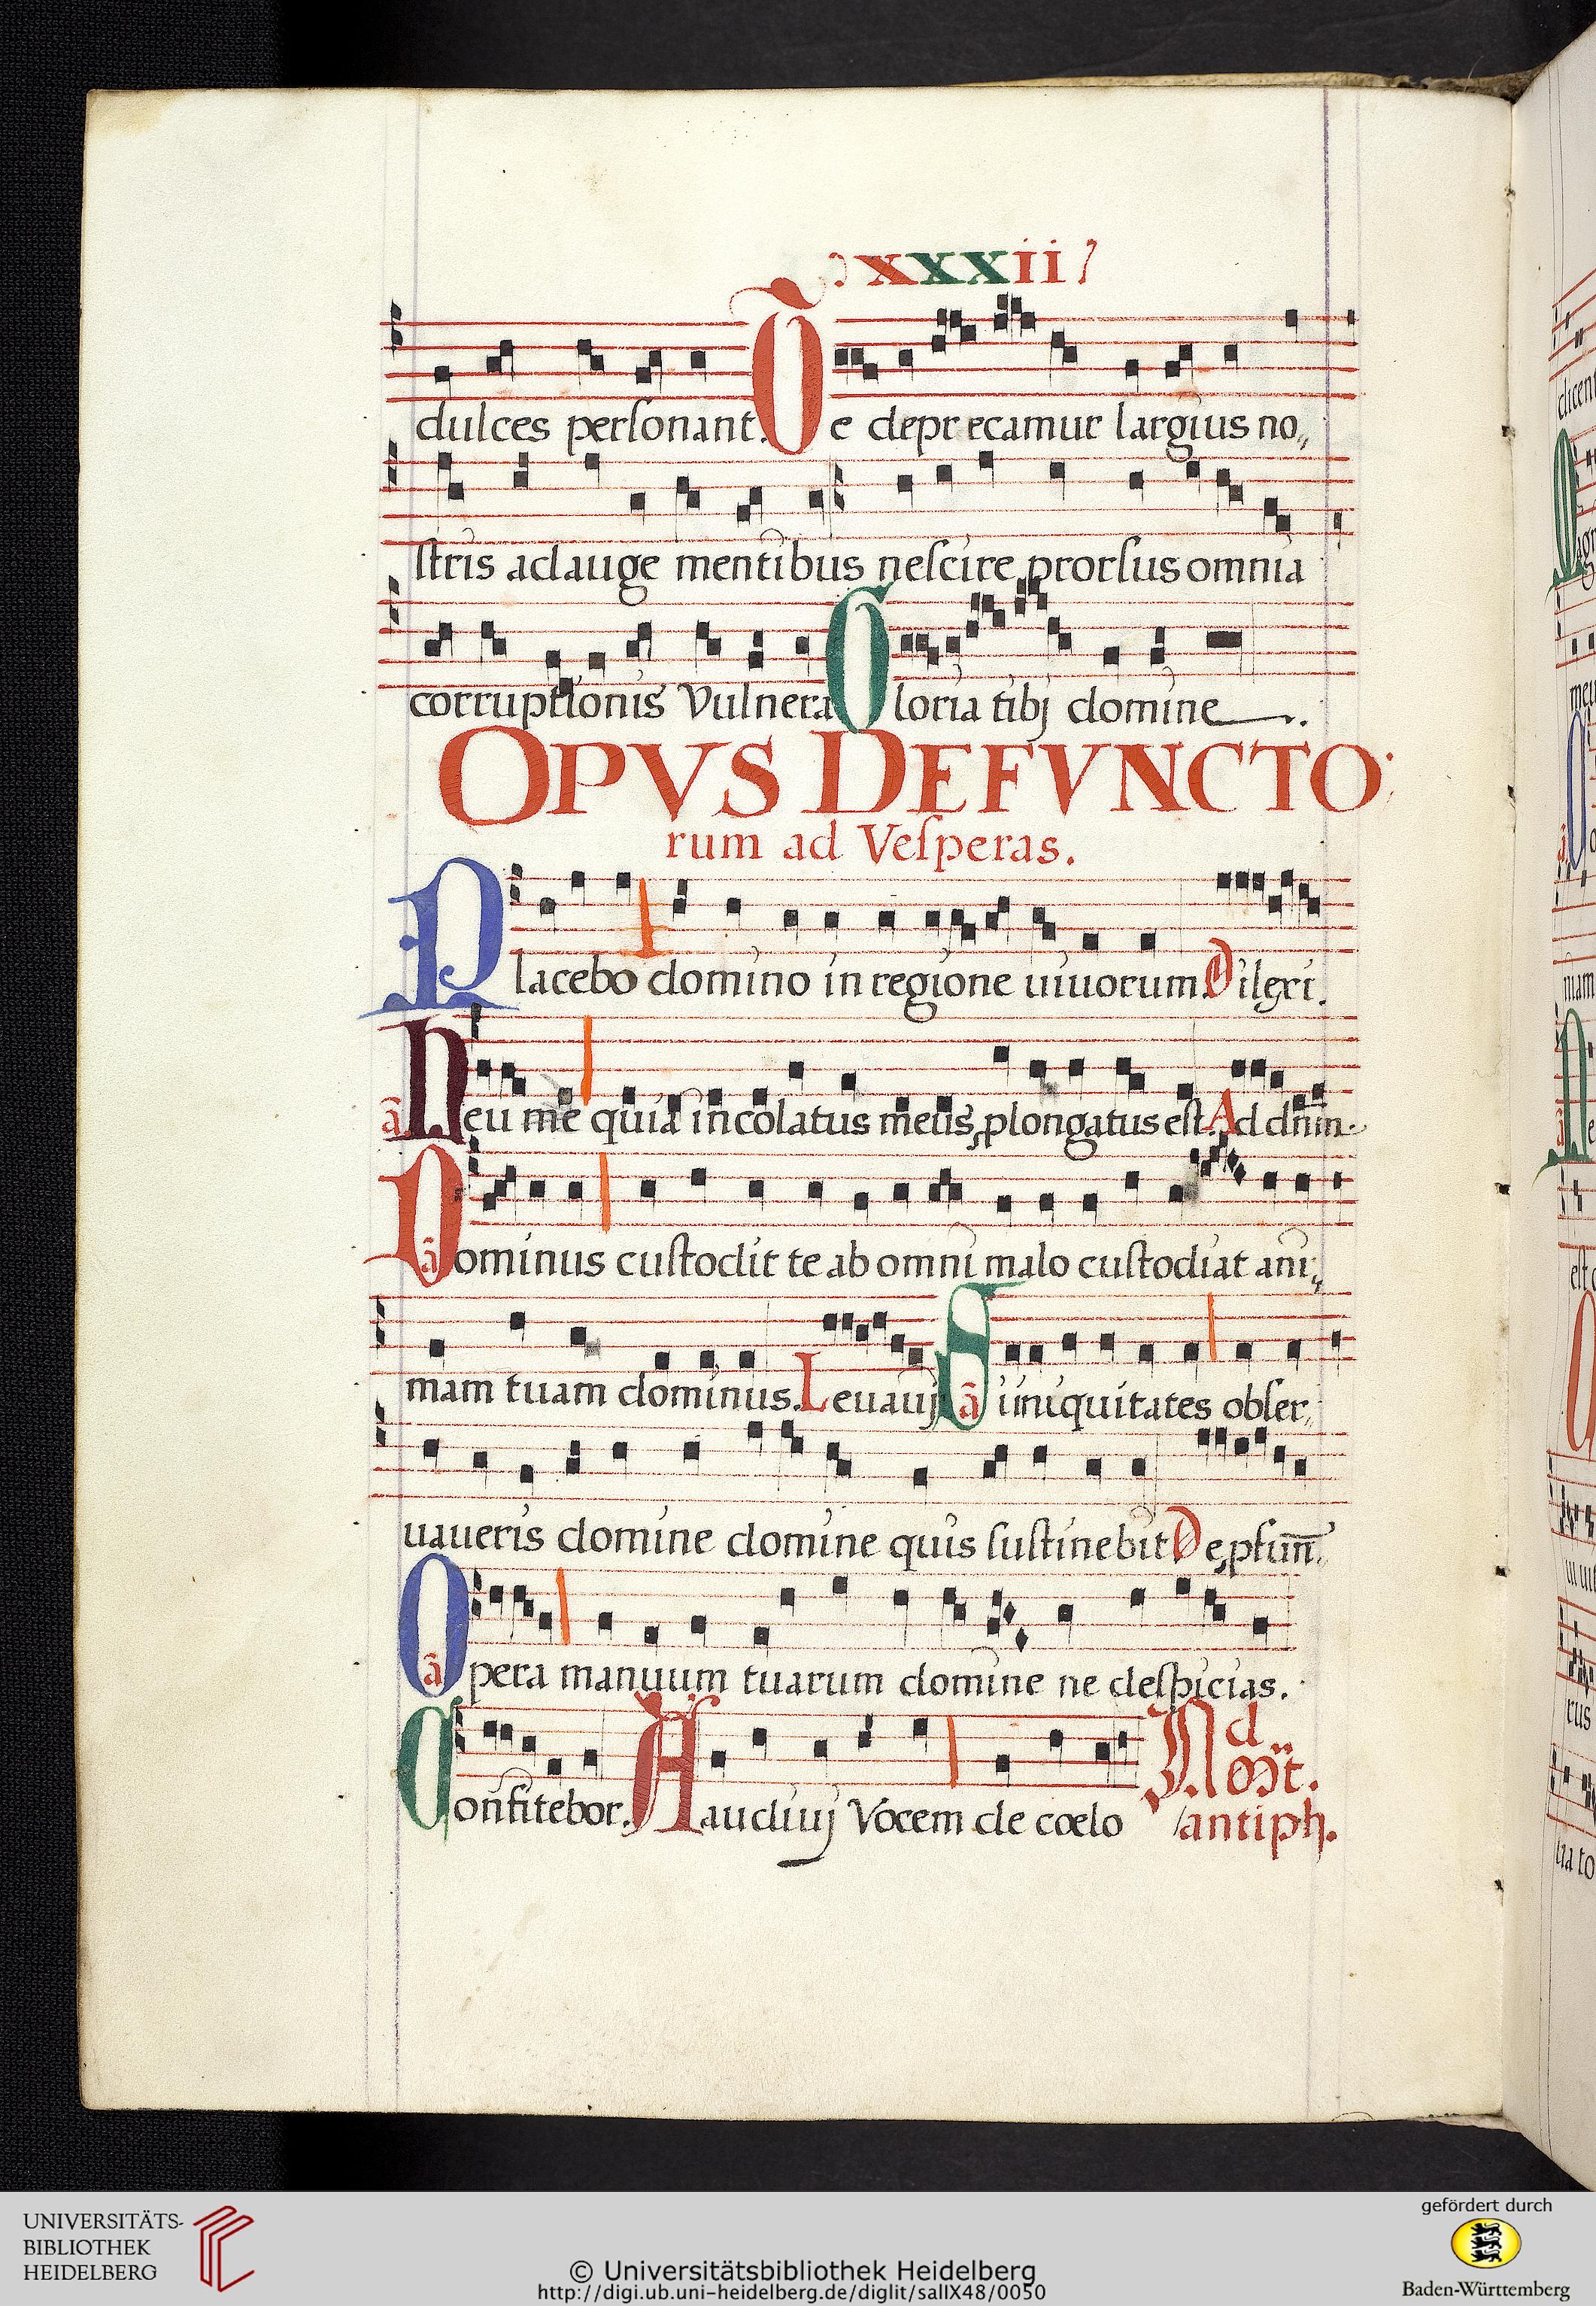 xxxii
dulces personant. Te deprecamur largius no„
stris adauge mentibus nescire prorsus omnia
corruptionis vulnera Gloria tibj domine.
OPVS DEFVNCTO
rum ad Vesperas.
Placebo domino in regione uiuorum. Dilexi.
ā Heu me quia incolatus meus ꝓlongatus est. Ad dnm.
ā Dominus custodit te ab omni malo custodiat ani„
mam tuam dominus. Leuauj ā Si iniquitates obser„
uaueris domine domine quis sustinebit De ꝓfun̄„
ā Opera manuum tuarum domine ne despicias.
Confitebor. Audiuj vocem de cœlo Ad
Noct.
antiph.
UNIVERSITÄTS-
BIBLIOTHEK
HEIDELBERG
© Universitätsbibliothek Heidelberg
http://digi.ub.uni-heidelberg.de/diglit/salIX48/0050
gefördert durch
Baden-Württemberg